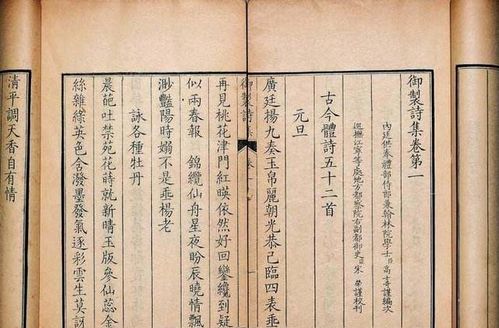 御製詩集卷第一
內廷供奉禮部侍郎兼翰林院學士臣高士奇謹編次
巡撫江寧等處地方都察院右副都御史臣宋犖謹校刊
古今體詩五十二首
元旦
廣廷揚九奏玉帛麗朝光恭己臨四表垂
御製詩集
再見桃花津門紅映依然好回鑾纔到疑
似兩春報 錦纜仙舟星夜盼辰曉情飄
渺艷陽時嫋不是垂楊老
詠各種牡丹
晨葩吐禁苑花蒔就新晴玉版參仙蕊金
絲雜絳英色含潑墨發氣逐彩雲生莫訝
清平調天香自有情